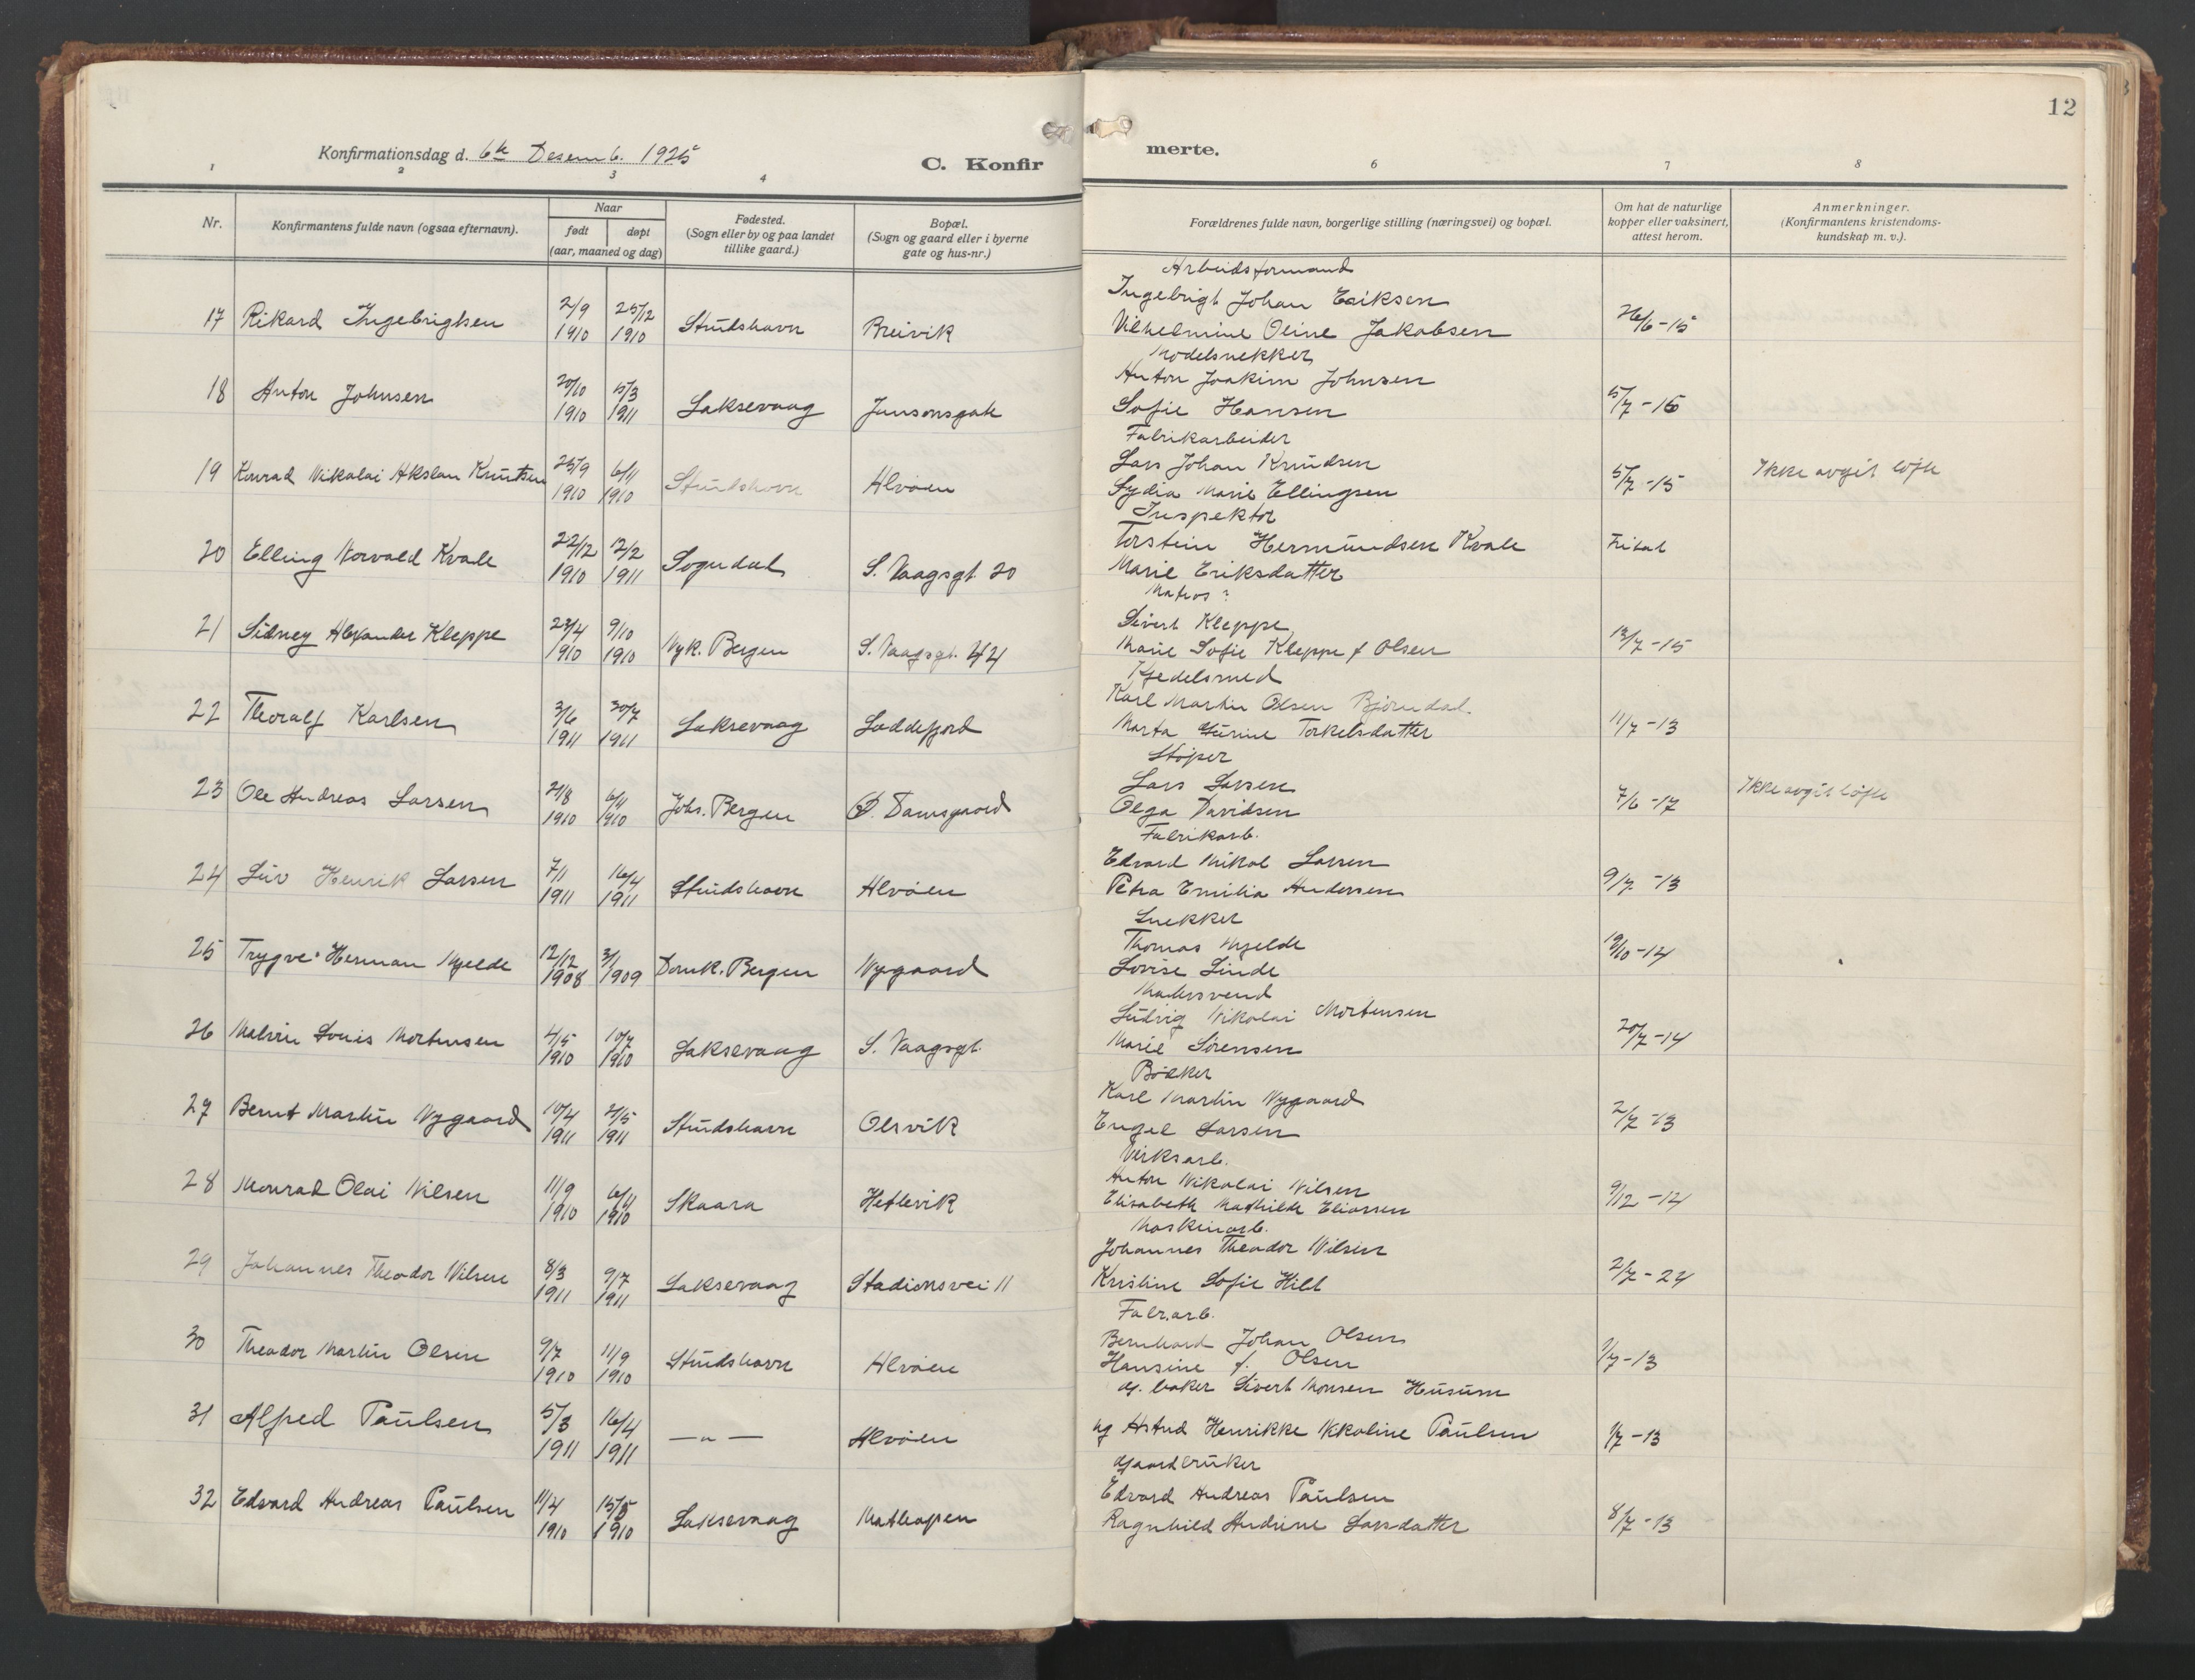 12
Konfirmationsdag d. 6te Desemb. 1925
C. Konfir
merte.
1 2 3 4
6 7 8
Nr.
Konfirmantens fulde navn (ogsaa efternavn).
Naar
født
døpt
(aar, maaned og dag)
Fødested.
(Sogn eller by og paa landet
tillike gaard.)
Bopæl.
(Sogn og gaard eller i byerne
gate og hus-nr.)
Forældrenes fulde navn, borgerlige stilling (næringsvei) og bopæl.
Om hat de naturlige
kopper eller vaksinert,
attest herom.
Anmerkninger.
(Konfirmantens kristendoms-
kundskap m. v.).
Arbeidsformand
Ingebrigt Johan Eriksen
17 Rikard Ingebrigtsen 2/9 1910 25/12 1910 Studshavn Breivik Vilhelmine Oline Jakobsen 26/6-15
Modelsnekker
Anton Joakim Johnsen
18 Anton Johnsen 20/10 1910 5/3 1911 Laksevaag Jansonsgate Sofie Hansen 5/7-16
Fabrikarbeider
Lars Johan Knudsen
19 Konrad Nikolai Akslan Knutsen 25/9 1910 6/11 1910 Studshavn Alvøen Lydia Marie Ellingsen 5/7-15 Ikke avgit løfte
Inspektør
Torstein Hermundsen Kvale
20 Elling Norvald Kvale 22/12 1910 12/2 1911 Sogndal S. Vaagsgt. 20 Marie Eriksdatter Fritat
Matros?
Sivert Kleppe
21 Sidney Alexander Kleppe 23/4 1910 9/10 1910 Nyk. Bergen S. Vaagsgt. 44 Marie Sofie Kleppe f Olsen 13/7-15
Kjedelsmed
Karl Martin Olsen Bjørndal.
22 Thoralf Karlsen 3/6 1911 30/7 1911 Laksevaag Loddefjord Marta Gurine Torkelsdatter 11/7-13
Støper
Lars Larsen
23 Ole Andreas Larsen 21/8 1910 6/11 1910 Johs. Bergen Ø. Damsgaard Olga Davidsen 7/6-17 Ikke avgit løfte
Fabrikarb.
Edvard Mikal Larsen
24 Leiv Henrik Larsen 7/1 1911 16/4 1911 Studshavn Alvøen Petra Emilia Andersen 9/7-13
Snekker
Thomas Mjelde
25 Trygve Herman Mjelde 12/12 1908 3/1 1909 Domk. Bergen Nygaard Lovise Linde 19/10-14
Malersvend
Ludvig Nikolai Mortensen
26 Malvin Louis Mortensen 4/5 1910 10/7 1910 Laksevaag S. Vaagsgt. Marie Sørensen 20/7-14
Bøker
Karl Martin Nygaard
27 Bernt Martin Nygaard 10/4 1911 2/5 1911 Studshavn Olsvik Engel Larsen 2/7-13
Verksarb.
Anton Nikolai Nilsen
28 Monrad Olai Nilsen 11/9 1910 6/11 1910 Skaara Hetlevik Elisabeth Mathilde Eliassen 9/12-14
Maskinarb.
Johannes Theodor Nilsen
29 Johannes Theodor Nilsen 8/3 1911 9/7 1911 Laksevaag Stadionsvei 11 Kristine Sofie Hilt 2/7-24
Fabr.arb.
Bernhard Johan Olsen
30 Theodor Martin Olsen 9/7 1910 11/9 1910 Studshavn Alvøen Hansine f. Olsen 1/7-13
gj. baker Sivert Monsen Husum
31 Alfred Paulsen 5/3 1911 16/4 1911 —"— Alvøen ug Astrid Henrikke Nikoline Paulsen 1/7-13
Gaardbruker
Edvard Andreas Paulsen
32 Edvard Andreas Paulsen 11/4 1910 15/5 1910 Laksevaag Mathopen Ragnhild Andrine Larsdatter 8/7-13